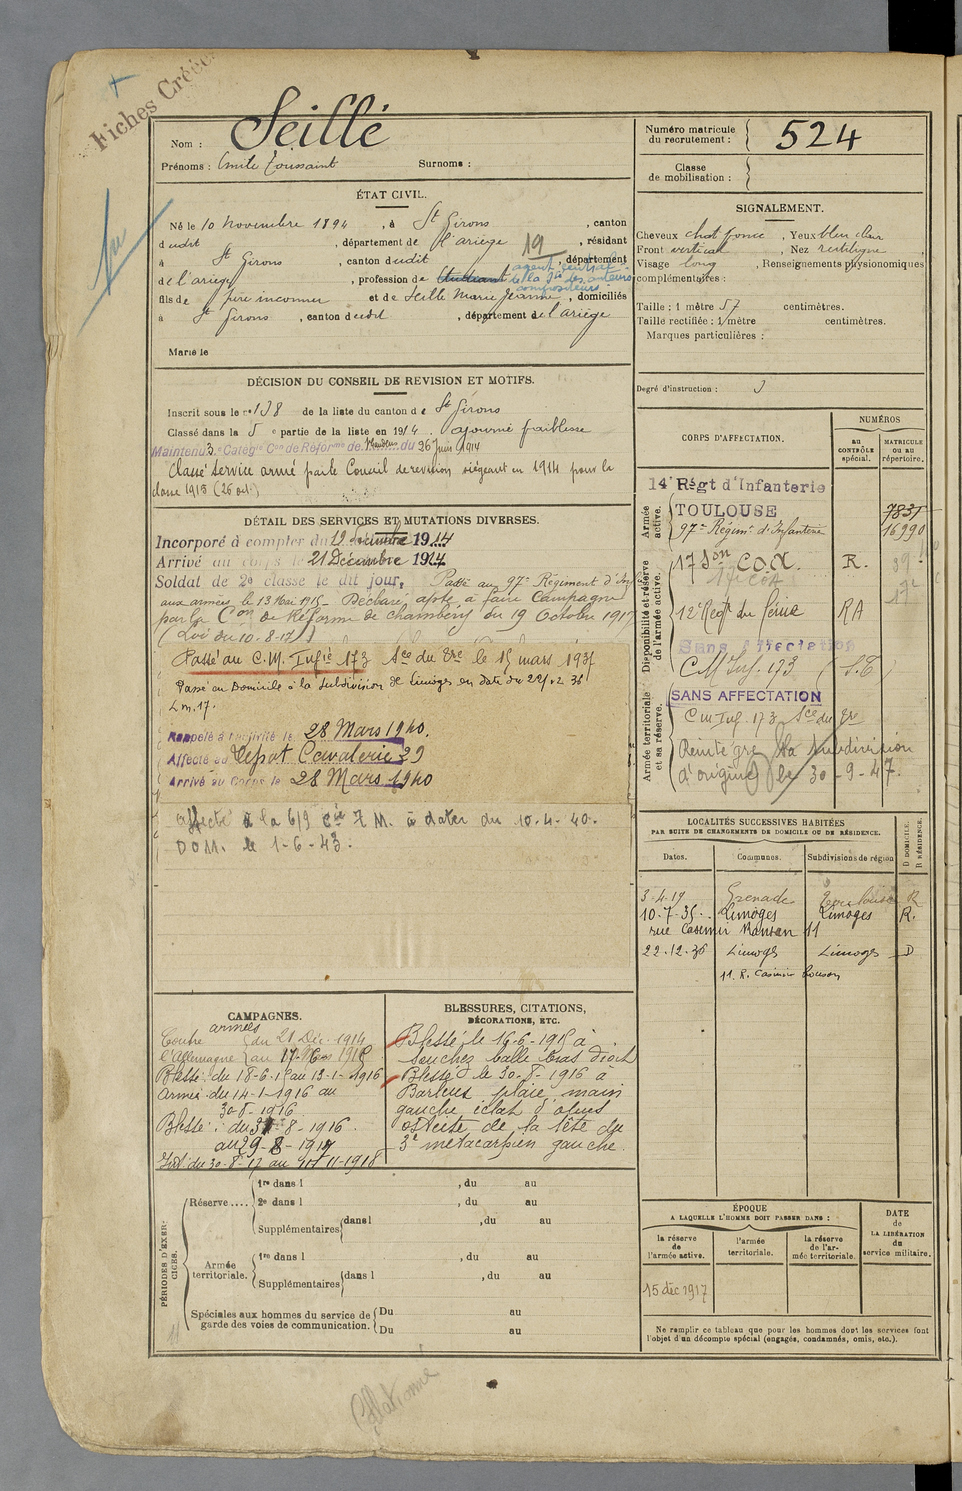 Fiches Créées
Nom : Seillé
Prénoms : Emile Toussaint Surnoms :
Numéro matricule du recrutement : 524
Classe de mobilisation :
ÉTAT CIVIL.
Né le 10 novembre 1894, à St Girons, canton
dudit, département de l'ariège, résidant
19
à St Girons, canton dudit, département
de l'ariège, profession de étudiant agent général
de la Sté des auteurs
compositeurs
fils de père inconnu et de Seillé Marie Jeanne, domiciliés
à St Girons, canton dudit, département de l'ariège
Marié le
SIGNALEMENT.
Cheveux chat foncé, Yeux bleu clair
Front vertical, Nez rectiligne,
Visage long, Renseignements physionomiques
complémentaires :
Taille : 1 mètre 57 centimètres.
Taille rectifiée : 1 mètre centimètres.
Marques particulières :
Degré d'instruction : 3
DÉCISION DU CONSEIL DE REVISION ET MOTIFS.
Inscrit sous le n° 138 de la liste du canton de St Girons
Classé dans la 5e partie de la liste en 1914. ajourné faiblesse
Maintenu 3e Catégie Con de Réforme de du 26 Juin 1914
Classé Service armé par le Conseil de revision siégeant en 1914 pour la
classe 1915 (26 oct)
DÉTAIL DES SERVICES ET MUTATIONS DIVERSES.
Incorporé à compter du 19 décembre 1914
Arrivé au corps le 21 Décembre 1914
Soldat de 2e classe le dit jour. Passé au 97e Régiment d'Inf
aux armées le 13 Mai 1915 - Déclaré apte à faire Campagne
par la Con de Réforme de chambéry du 19 Octobre 1917
(Loi du 10-8-17)
Passé au C.M. Infie 173 Sce du Gre le 15 mars 1937
Passé en Domicile à la subdivision de Limoges en date du
Rappelé à l'activité le 28 Mars 1940.
Affecté au Dépot Cavalerie 29
Arrivé au Corps le 28 Mars 1940
affecté à la 619 Cie Z M. à dater du 10-4-40.
DOM. le 1-6-43.
CORPS D'AFFECTATION.
NUMÉROS
au CONTRÔLE spécial.
MATRICULE OU AU répertoire.
Armée active.
14e Régt d'Infanterie
TOULOUSE
7835
97e Régim. d'Infanterie 16990
Disponibilité et réserve de l'armée active.
17 Son C.O.A. R.
12e Regt du Génie RA
Sans affectation
C M Inf. 173
Armée territoriale et sa réserve.
SANS AFFECTATION
C M Inf. 173 Sce du Gre
Réintègre sa subdivision
d'origine le 30-9-47.
LOCALITÉS SUCCESSIVES HABITÉES
PAR SUITE DE CHANGEMENTS DE DOMICILE OU DE RÉSIDENCE.
Dates. Communes. Subdivisions de région D DOMICILE. R RÉSIDENCE.
3-4-19 Grenade Toulouse R
10-7-35. Limoges Limoges R.
rue Casimir Ranson 11
22-12-36 Limoges Limoges D
11. R. Casimir Ranson
CAMPAGNES.
armées
Contre l'Allemagne du 21 Déc. 1914
au 17-6-1915
Blessé : du 18-6-15 au 13-1-1916
Armées du 14-1-1916 au
30-8-1916
Blessé : du 31-8-1916
au 29-8-1917
Int. du 30-8-17 au 11-11-1918
BLESSURES, CITATIONS,
DÉCORATIONS, ETC.
Blessé le 16-6-1915 à
Souchez balle bras droit
Blessé le 30-8-1916 à
Barleux plaie main
gauche éclat d'obus
ostéite de la tête du
3e métacarpien gauche.
PÉRIODES D'EXERCICES.
Réserve .... 1re dans l , du au
2e dans l , du au
Supplémentaires dans l , du au
Armée territoriale. 1re dans l , du au
Supplémentaires dans l , du au
Spéciales aux hommes du service de garde des voies de communication. Du au
Du au
ÉPOQUE
A LAQUELLE L'HOMME DOIT PASSER DANS :
la réserve de l'armée active.
l'armée territoriale.
la réserve de l'armée territoriale.
DATE de LA LIBÉRATION du service militaire.
15 déc 1917
Ne remplir ce tableau que pour les hommes dont les services font
l'objet d'un décompte spécial (engagés, condamnés, omis, etc.).
Collationné